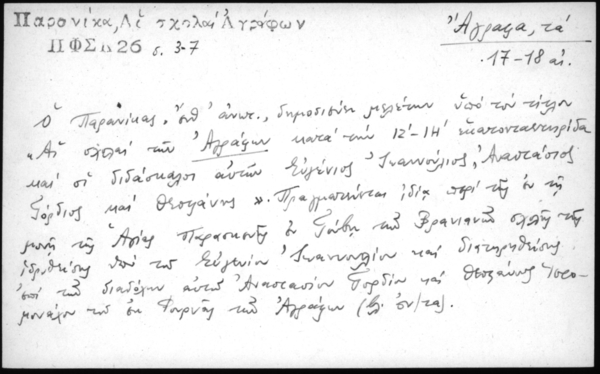 Παρανίκα, Αἱ σχολαί Ἀγράφων
ΠΦΣΚ 26 σ. 3-7
Ἄγραφα, τά
17-18 αἰ.
Ὁ Παρανίκας, ἔνθ' ἀνωτ., δημοσιεύει μελέτην ὑπό τόν τίτλον
"Αἱ σχολαί τῶν Ἀγράφων κατά τήν ΙΖ'-ΙΗ' ἑκατονταετηρίδα
καί οἱ διδάσκαλοι αὐτῶν Εὐγένιος Ἰωαννούλιος, Ἀναστάσιος
Γόρδιος καί Θεοφάνης". Πραγματεύεται ἰδίᾳ περί τῆς ἐν τῇ
μονῇ τῆς Ἁγίας Παρασκευῆς ἐν Γούβᾳ τῶν Βρανιανῶν σχολῆς τῆς
ἱδρυθείσης ὑπό τοῦ Εὐγενίου Ἰωαννουλίου καί διατηρηθείσης
ὑπό τῶν διαδόχων αὐτοῦ Ἀναστασίου Γορδίου καί Θεοφάνους Ἱερο-
μονάχου τοῦ ἐκ Φουρνᾶς τῶν Ἀγράφων (βλ. ὀν/τας).